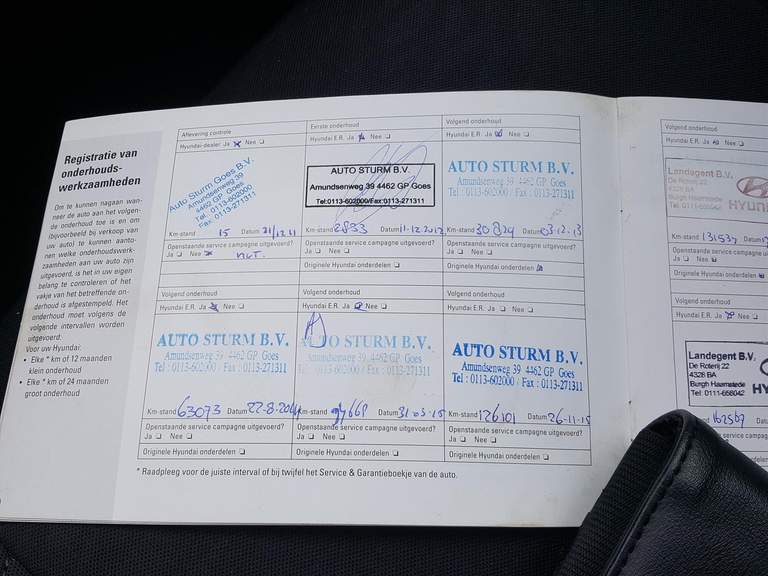 Registratie van
onderhouds-
werkzaamheden
Om te kunnen nagaan wan-
neer de auto aan het volgen-
de onderhoud toe is en om
(bijvoorbeeld bij verkoop van
uw auto) te kunnen aanto-
nen welke onderhoudswerk-
zaamheden aan uw auto zijn
uitgevoerd, is het in uw eigen
belang te controleren of het
vakje van het betreffende on-
derhoud is afgestempeld. Het
onderhoud moet volgens de
volgende intervallen worden
uitgevoerd:
Voor uw Hyundai:
• Elke * km of 12 maanden
klein onderhoud
• Elke * km of 24 maanden
groot onderhoud
Aflevering controle
Hyundai-dealer Ja Nee
Auto Sturm Goes B.V.
Amundsenweg 39
4462 GP Goes
Tel: 0113-602000
Fax: 0113-271311
Km-stand 15 Datum 21/12 11
Openstaande service campagne uitgevoerd?
Ja Nee
Eerste onderhoud
Hyundai E.R. Ja Nee
AUTO STURM B.V.
Amundsenweg 39 4462 GP Goes
Tel:0113-602000/Fax:0113-271311
Km-stand 2833 Datum 11-12.2012
Openstaande service campagne uitgevoerd?
Ja Nee
Originele Hyundai onderdelen
Volgend onderhoud
Hyundai E.R. Ja Nee
AUTO STURM B.V.
Amundsenweg 39 4462 GP Goes
Tel : 0113-602000 / Fax : 0113-271311
Km-stand 30824 Datum 03.12.13
Openstaande service campagne uitgevoerd?
Ja Nee
Originele Hyundai onderdelen
Volgend onderhoud
Hyundai E.R. Ja Nee
AUTO STURM B.V.
Amundsenweg 39 4462 GP Goes
Tel : 0113-602000 / Fax : 0113-271311
Km-stand 63073 Datum 22-8-2014
Openstaande service campagne uitgevoerd?
Ja Nee
Originele Hyundai onderdelen
Volgend onderhoud
Hyundai E.R. Ja Nee
AUTO STURM B.V.
Amundsenweg 39 4462 GP Goes
Tel : 0113-602000 / Fax : 0113-271311
Km-stand Datum 31-03-15
Openstaande service campagne uitgevoerd?
Ja Nee
Originele Hyundai onderdelen
Volgend onderhoud
Hyundai E.R. Ja Nee
AUTO STURM B.V.
Amundsenweg 39 4462 GP Goes
Tel : 0113-602000 / Fax : 0113-271311
Km-stand 126101 Datum 26-11-15
Openstaande service campagne uitgevoerd?
Ja Nee
Originele Hyundai onderdelen
* Raadpleeg voor de juiste interval of bij twijfel het Service & Garantieboekje van de auto.
Volgend onderhoud
Hyundai E.R. Ja Nee
Landegent B.V.
De Roterij 22
4328 BA
Burgh Haamstede
HYUN
Km-stand 131537 Datum
Openstaande service campagne
Ja Nee
Originele Hyundai onderdelen
Volgend onderhoud
Hyundai E.R. Ja Nee
Landegent B.V.
De Roterij 22
4328 BA
Burgh Haamstede
Tel: 0111-658042
HY
162567 Datum
service campagne
onderdelen